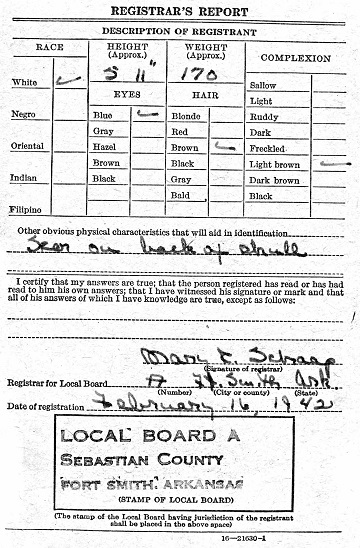 REGISTRAR'S REPORT
DESCRIPTION OF REGISTRANT
RACE
HEIGHT (Approx.)
WEIGHT (Approx.)
COMPLEXION
White ✓
5 11"
170
Sallow
EYES
HAIR
Light
Negro
Blue ✓
Blonde
Ruddy
Gray
Red
Dark
Oriental
Hazel
Brown ✓
Freckled
Brown
Black
Light brown ✓
Indian
Black
Gray
Dark brown
Bald
Black
Filipino
Other obvious physical characteristics that will aid in identification
Scar on back of skull
I certify that my answers are true; that the person registered has read or has had
read to him his own answers; that I have witnessed his signature or mark and that
all of his answers of which I have knowledge are true, except as follows:
Mary K. Schaap
(Signature of registrar)
Registrar for Local Board A Ft. Smith Ark.
(Number) (City or county) (State)
Date of registration February 16, 1942
LOCAL BOARD A
SEBASTIAN COUNTY
FORT SMITH, ARKANSAS
(STAMP OF LOCAL BOARD)
(The stamp of the Local Board having jurisdiction of the registrant
shall be placed in the above space)
16—21630-1